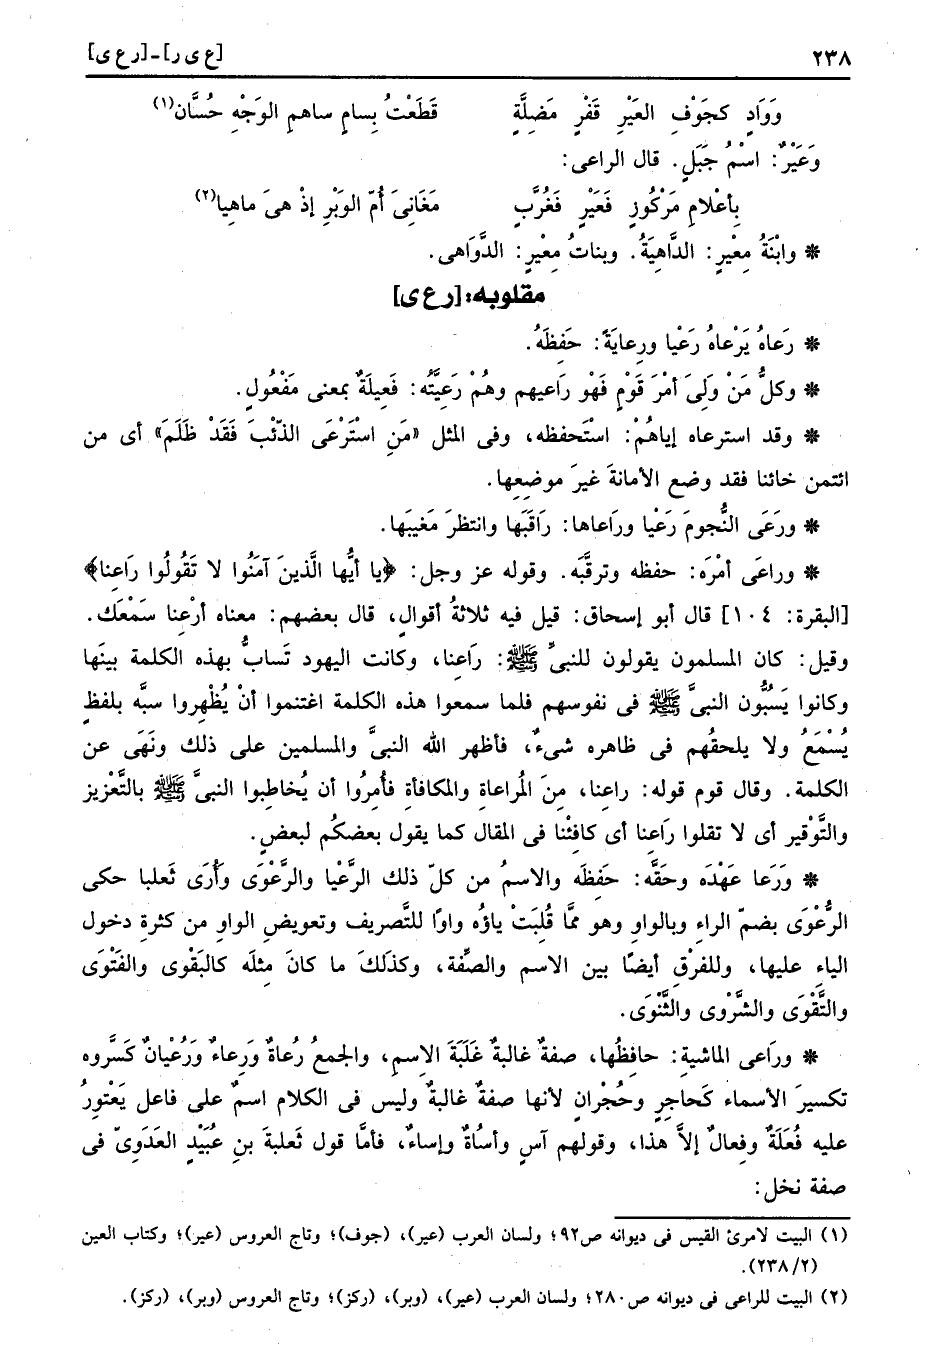 ٢٣٨ [ع ى ر] - [ر ع ى]
وَوَادٍ كجَوْفِ العَيْرِ قَفْرٍ مَضلَّةٍ قَطَعْتُ بِسامٍ ساهمِ الوَجْهِ حُسَّان(١)
وَعَيْرٌ: اسْمُ جَبَلٍ. قال الراعى:
بِأعْلامِ مَرْكُوزٍ فَعَيْرٍ فَغُرَّبٍ مَغَانِىَ أُمّ الوَبْرِ إذْ هىَ ماهيا(٢)
* وابْنَةُ مِعْيرٍ: الدَّاهِيَةُ. وبناتُ مِعْيرٍ: الدَّوَاهى.
مقلوبه: [ر ع ى]
* رَعاهُ يَرْعاهُ رَعْيا ورِعايَةً: حَفِظَهُ.
* وكلُّ مَنْ وَلِىَ أمْرَ قَوْمٍ فَهْو رَاعيهم وهُمْ رَعَيَّتُه: فَعِيلَةٌ بمعنى مَفْعُولٍ.
* وقد استرعاه إياهُمْ: اسْتَحفظه، وفى المثل «مَنِ اسْتَرْعَى الذّئْبَ فَقَدْ ظَلَمَ» أى من
ائتمن خائنا فقد وضع الأمانةَ غيرَ موضِعِها.
* ورَعَى النُّجومَ رَعْيا ورَاعاها: رَاقَبَها وانتظرَ مَغيبَها.
* وراعَى أمْرَه: حفظه وترقَّبَه. وقوله عز وجل: ﴿يا أيُّها الَّذينَ آمَنُوا لا تَقُولُوا رَاعِنا﴾
[البقرة: ١٠٤] قال أبو إسحاق: قيل فيه ثلاثةُ أقوالٍ، قال بعضهم: معناه أرْعِنا سَمْعَك.
وقيل: كان المسلمون يقولون للنبىِّ ﷺ: رَاعِنا، وكانت اليهود تَسابُّ بهذه الكلمة بينَها
وكانوا يَسُبُّون النبىَّ ﷺ فى نفوسهم فلما سمعوا هذه الكلمة اغتنموا أنْ يُظْهِروا سبَّه بلفظٍ
يُسْمَعُ ولا يلحقُهم فى ظاهره شىءٌ، فأظهر الله النبىَّ والمسلمين على ذلك ونَهَى عن
الكلمة. وقال قوم قوله: راعِنا، مِنَ المُراعاة والمكافأةِ فأُمِرُوا أن يُخاطِبوا النبىَّ ﷺ بالتَّعْزيز
والتَّوْقير أى لا تقلوا رَاعِنا أى كافِئْنا فى المقال كما يقول بعضكُم لبعضٍ.
* وَرَعا عَهْدَه وحَقَّه: حَفِظَه والاسمُ من كلّ ذلك الرَّعْيا والرَّعْوَى وأُرَى ثَعلبا حكى
الرُّعْوَى بضمّ الراء وبالواو وهو ممَّا قُلِبَتْ ياؤُه واوًا للتَّصريف وتعويضِ الواوِ من كثرةِ دخول
الياء عليها، وللفرْقِ أيضًا بين الاسم والصِّفة، وكذلكَ ما كانَ مثلَه كالبَقْوى والفَتْوَى
والتَّقْوَى والشَّرْوى والثَّنْوَى.
* ورَاعى الماشية: حافِظُها، صفةٌ غالبةٌ غَلَبَةَ الاِسمِ، والجمعُ رُعاةٌ وَرِعاءٌ وَرُعْيانٌ كَسَّروه
تكسيرَ الأسماء كَحاجِرٍ وحُجْران لأنها صفةٌ غالبةٌ وليس فى الكلام اسمٌ على فاعل يَعْتورُ
عليه فُعَلَةٌ وفِعالٌ إلاَّ هذا، وقولهم آسٍ وأُساةٌ وإساءٌ، فأمَّا قول ثَعلبةَ بنِ عُبَيْدٍ العَدَوِىّ فى
صفة نخل:
(١) البيت لامرئ القيس فى ديوانه ص٩٢؛ ولسان العرب (عير)، (جوف)؛ وتاج العروس (عير)؛ وكتاب العين
(٢/ ٢٣٨).
(٢) البيت للراعى فى ديوانه ص٢٨٠؛ ولسان العرب (عير)، (وبر)، (ركز)؛ وتاج العروس (وبر)، (ركز).